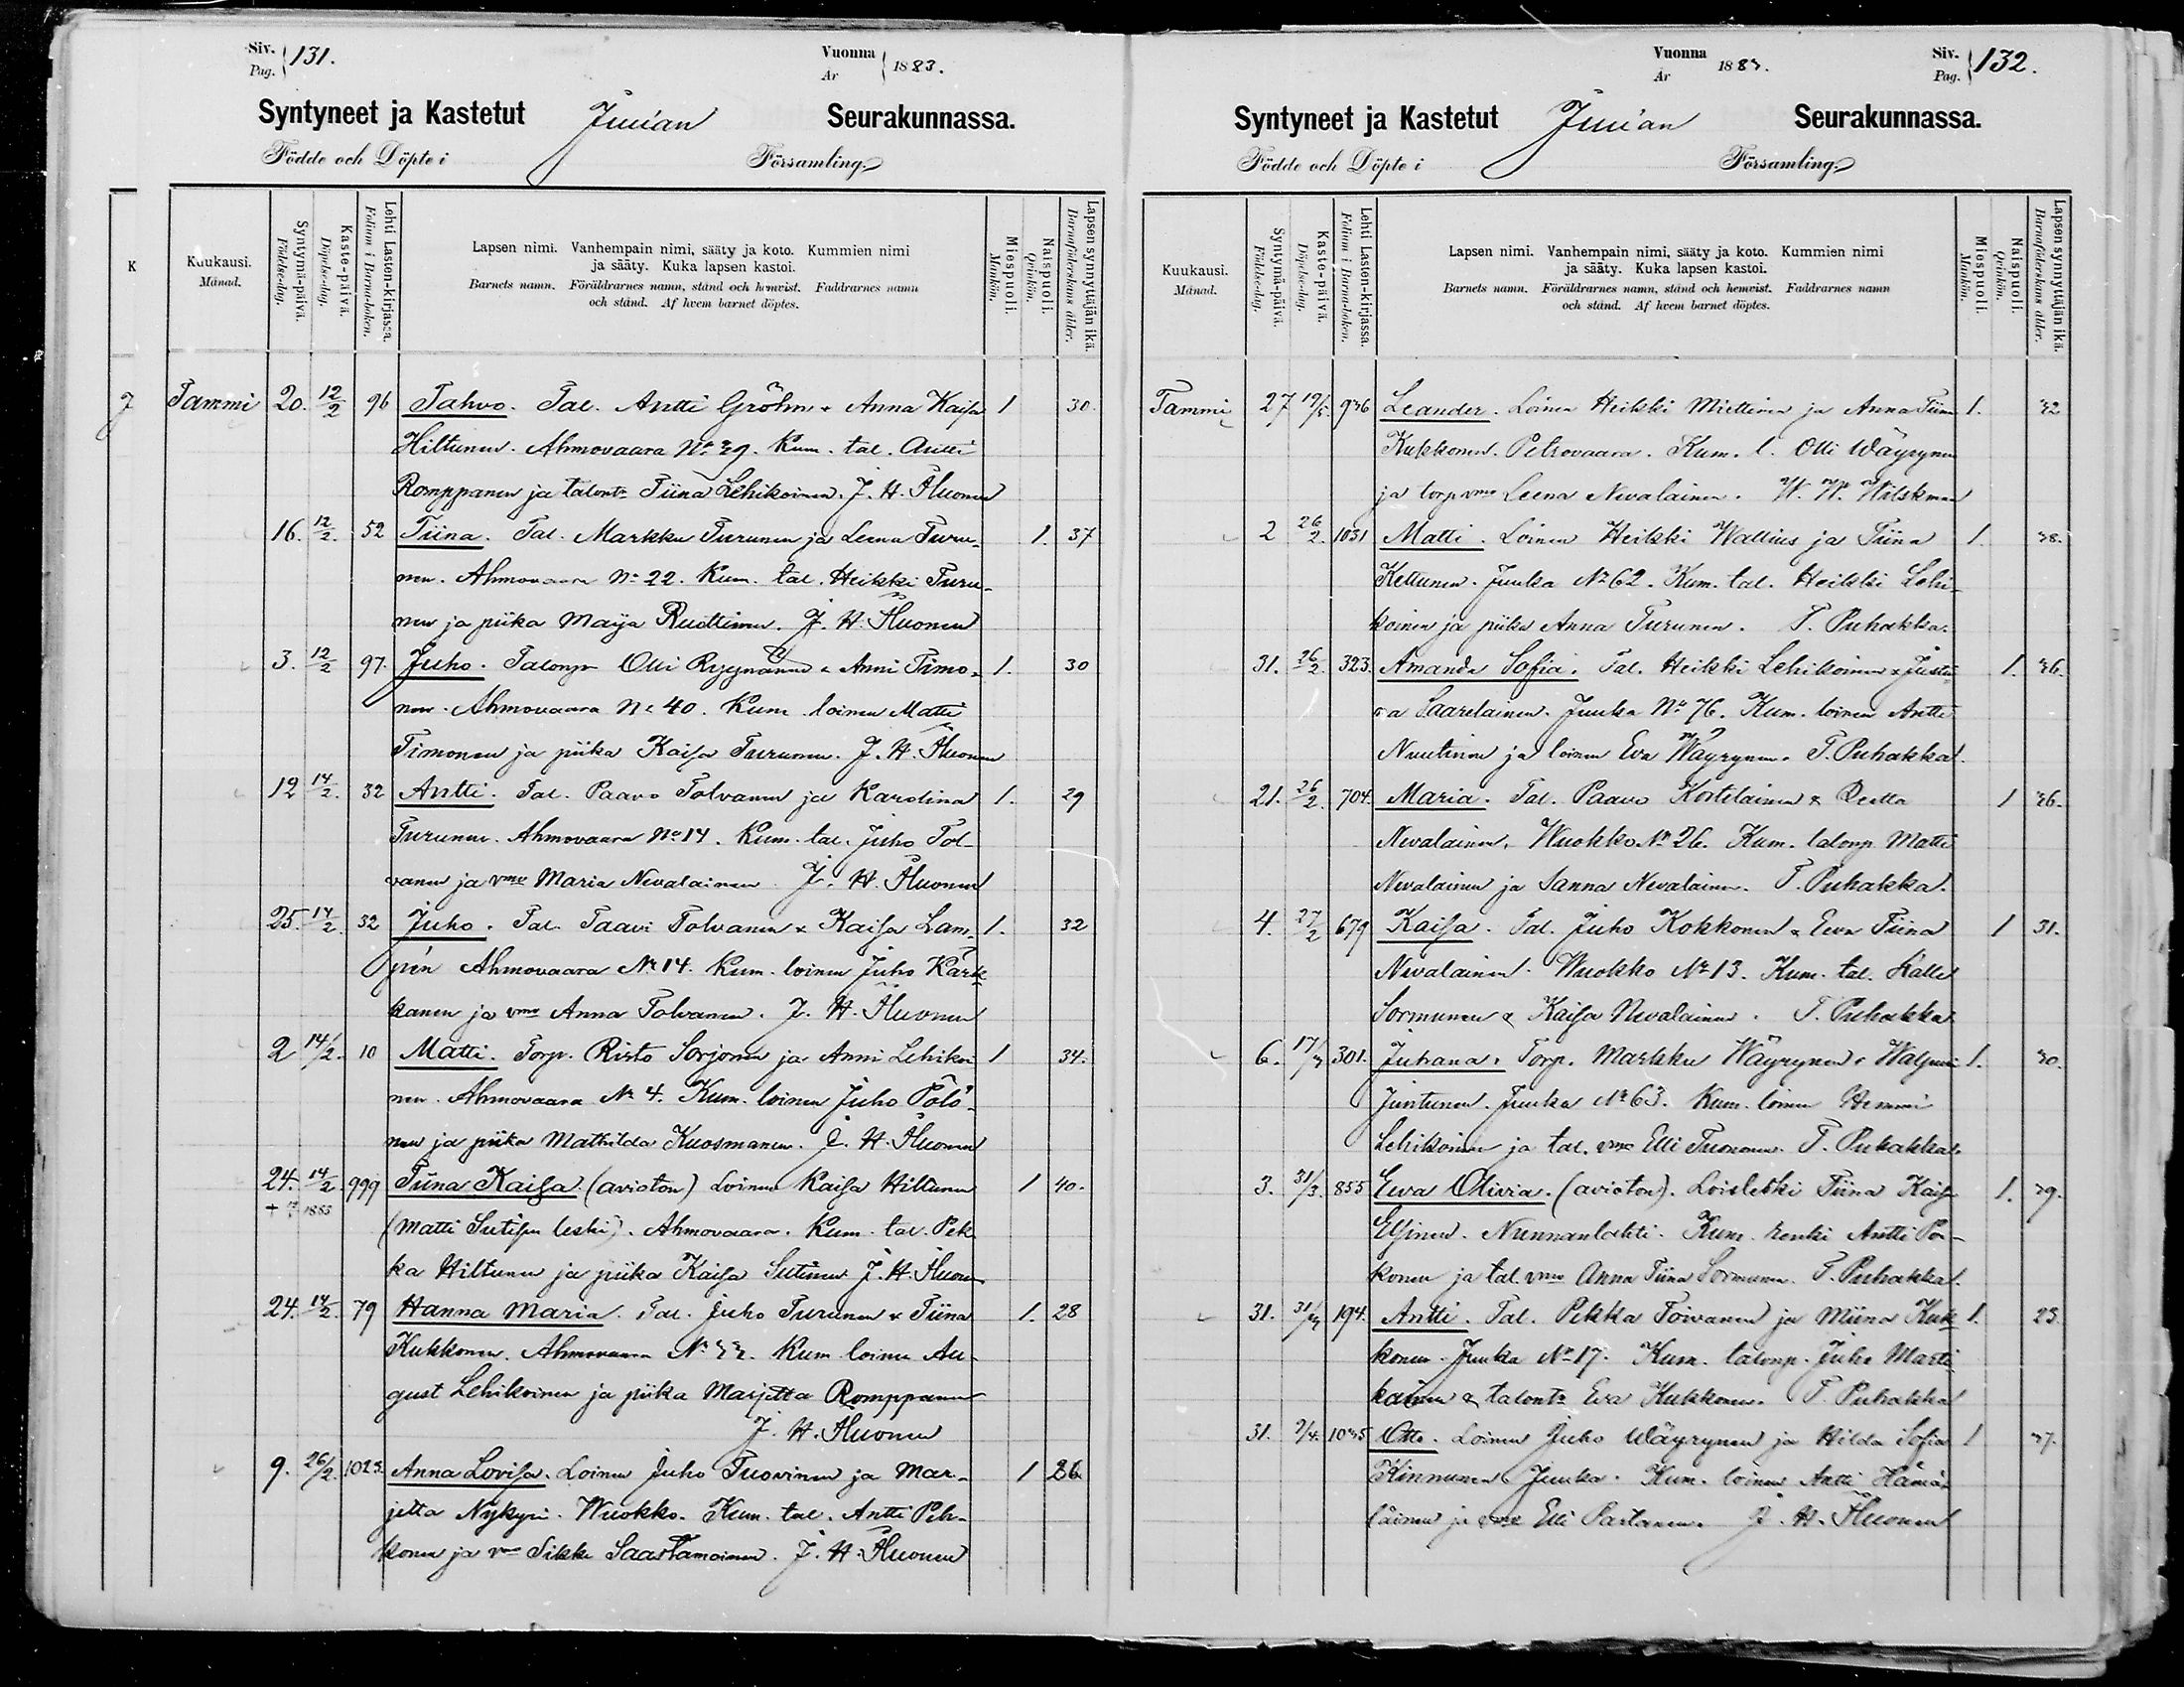 Siv. Pag. 131. Vuonna År 1883.
Syntyneet ja Kastetut Juuan Seurakunnassa.
Födde och Döpte i Församling.
K Kuukausi. Månad. Syntymä-päivä. Födelse-dag. Kaste-päivä. Döpelse-dag. Lehti Lasten-kirjassa. Folium i Barna-boken. Lapsen nimi. Vanhempain nimi, sääty ja koto. Kummien nimi ja sääty. Kuka lapsen kastoi. Barnets namn. Föräldrarnes namn, stånd och hemvist. Faddrarnes namn och stånd. Af hvem barnet döptes. Miespuoli. Mankön. Naispuoli. Qvinkön. Lapsen synnyttäjän ikä. Barnaföderskans ålder.
J Tammi 20. 12/2 96 Tahvo. Tal. Antti Gröhn & Anna Kaisa 1 30.
Hiltunen. Ahmovaara No 39. Kum. tal. Antti
Romppanen ja talontr Tiina Lehikoinen. J. H. Åhuonen
16. 12/2. 52 Tiina. Tal. Markku Turunen ja Leena Turu- 1. 37
nen. Ahmovaara No 22. Kum. tal. Heikki Turu-
nen ja piika Maija Ruottinen. J. H.
3. 12/2 97. Juho. Talonp Olli Ryynänen & Anni Timo- 1. 30
nen. Ahmovaara No 40. Kum. loinen Matti
Timonen ja piika Kaisa Turunen. J. H.
12 14/2. 32 Antti. Tal. Paavo Tolvanen ja Karolina 1. 29
Turunen. Ahmovaara No 14. Kum. tal. Juho Tol-
vanen ja vmo Maria Nevalainen J. H.
25. 14/2. 32 Juho. Tal. Taavi Tolvanen & Kaisa Lam- 1. 32
pin Ahmovaara No 14. Kum. loinen Juho Kärk-
känen ja vmo Anna Tolvanen. J. H.
2 14/2. 10 Matti. Torp. Risto Sorjonen ja Anni Lehikoi 1 34.
nen. Ahmovaara No 4. Kum. loinen Juho Pölö-
nen ja piika Mathilda Kuosmanen. J. H.
24. 14/2 999 Tiina Kaisa (avioton) Loinen Kaisa Hiltunen 1 40.
1883 (Matti Sutisen leski). Ahmovaara. Kum. tal. Pek-
ka Hiltunen ja piika Kaisa Sutinen J. H.
24. 14/2. 79 Hanna Maria. Tal. Juho Turunen & Tiina 1. 28
Kukkonen. Ahmovaara No 33. Kum loinen Au-
gust Lehikoinen ja piika Marjetta Romppanen
J. H.
9. 26/2. 1023. Anna Lovisa. Loinen Juho Tuovinen ja Mar- 1 26.
jetta Nykyri. Wuokko. Kum. tal. Antti Peh-
konen ja vmo Sikke Saastamoinen. J. H.
Vuonna År 1883. Siv. Pag. 132.
Syntyneet ja Kastetut Juuan Seurakunnassa.
Födde och Döpte i Församling.
Kuukausi. Månad. Syntymä-päivä. Födelse-dag. Kaste-päivä. Döpelse-dag. Lehti Lasten-kirjassa. Folium i Barna-boken. Lapsen nimi. Vanhempain nimi, sääty ja koto. Kummien nimi ja sääty. Kuka lapsen kastoi. Barnets namn. Föräldrarnes namn, stånd och hemvist. Faddrarnes namn och stånd. Af hvem barnet döptes. Miespuoli. Mankön. Naispuoli. Qvinkön. Lapsen synnyttäjän ikä. Barnaföderskans ålder.
Tammi 27 19/5. 936 Leander. Loinen Heikki Miettinen ja Anna Tiina 1. 32
Kukkonen. Petrovaara. Kum. l. Olli Wäyrynen
ja torp vmo Leena Nevalainen. W. W. Wilskman
2 26/2. 1031 Matti. Loinen Heikki Wallius ja Tiina 1. 38.
Kettunen. Juuka No 62. Kum. tal. Heikki Lehi-
koinen ja piika Anna Turunen. T. Puhakka.
31. 26/2. 323. Amanda Sofia. Tal. Heikki Lehikoinen & Justii- 1. 36.
na Saarelainen. Juuka No 76. Kum. loinen Antti
Nuutinen ja loinen Eva Wäyrynen. T. Puhakka.
21. 26/2. 704. Maria. Tal. Paavo Kortelainen & Reetta 1 36.
Nevalainen. Wuokko No 26. Kum. talonp. Matti
Nevalainen ja Sanna Nevalainen. T. Puhakka.
4. 27/2 679 Kaisa. Tal. Juho Kokkonen & Eeva Tiina 1 31.
Nevalainen. Wuokko No 13. Kum. tal. Kalle
Sormunen & Kaisa Nevalainen. T. Puhakka
6. 17/3 301. Juhana. Torp. Markku Wäyrynen & Walpuri 1. 30.
Juntunen. Juuka No 63. Kum. loinen Hemmi
Lehikoinen ja tal. vmo Elli Tuononen. T. Puhakka.
3. 31/3. 855 Eeva Olivia. (avioton). Loisleski Tiina Kaisa 1. 39.
Nunnanlahti. Kum. renki Antti Por-
konen ja tal. vmo Anna Tiina Sormunen. T. Puhakka.
31. 31/3 194. Antti. Tal. Pekka Toivanen ja Miina Kuk- 1. 23.
konen. Juuka No 17. Kum. talonp. Juho Marti-
kainen & talontr Eva Kukkonen. T. Puhakka
31. 7/4. 1035 Otto. Loinen Juho Wäyrynen ja Hilda Sofia 1 37.
Kinnunen Juuka. Kum. loinen Antti Hämä-
läinen ja vmo Elli Partanen. J. H.